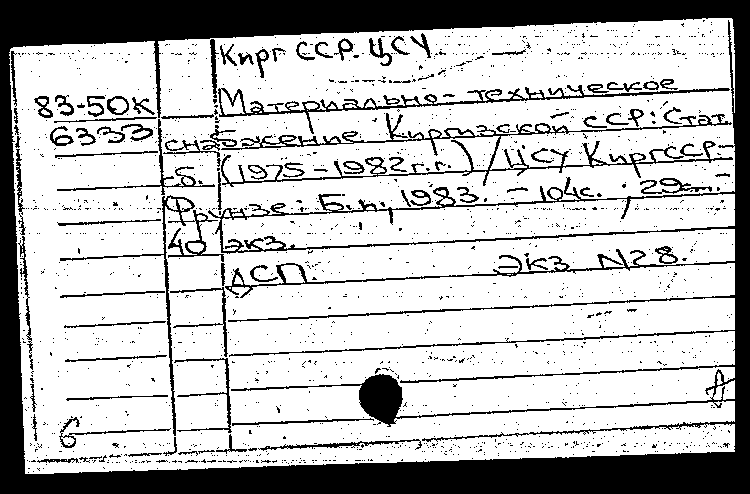 Кирг ССР. ЦСУ
83-50К Материально-техническое
6333 снабжение Киргизской ССР: Стат.
сб. (1975-1982 г.г.) / ЦСУ КиргССР.-
Фрунзе: Б.и., 1983. - 104с. ; 29см.-
40 экз.
ДСП. Экз N28.
А
6